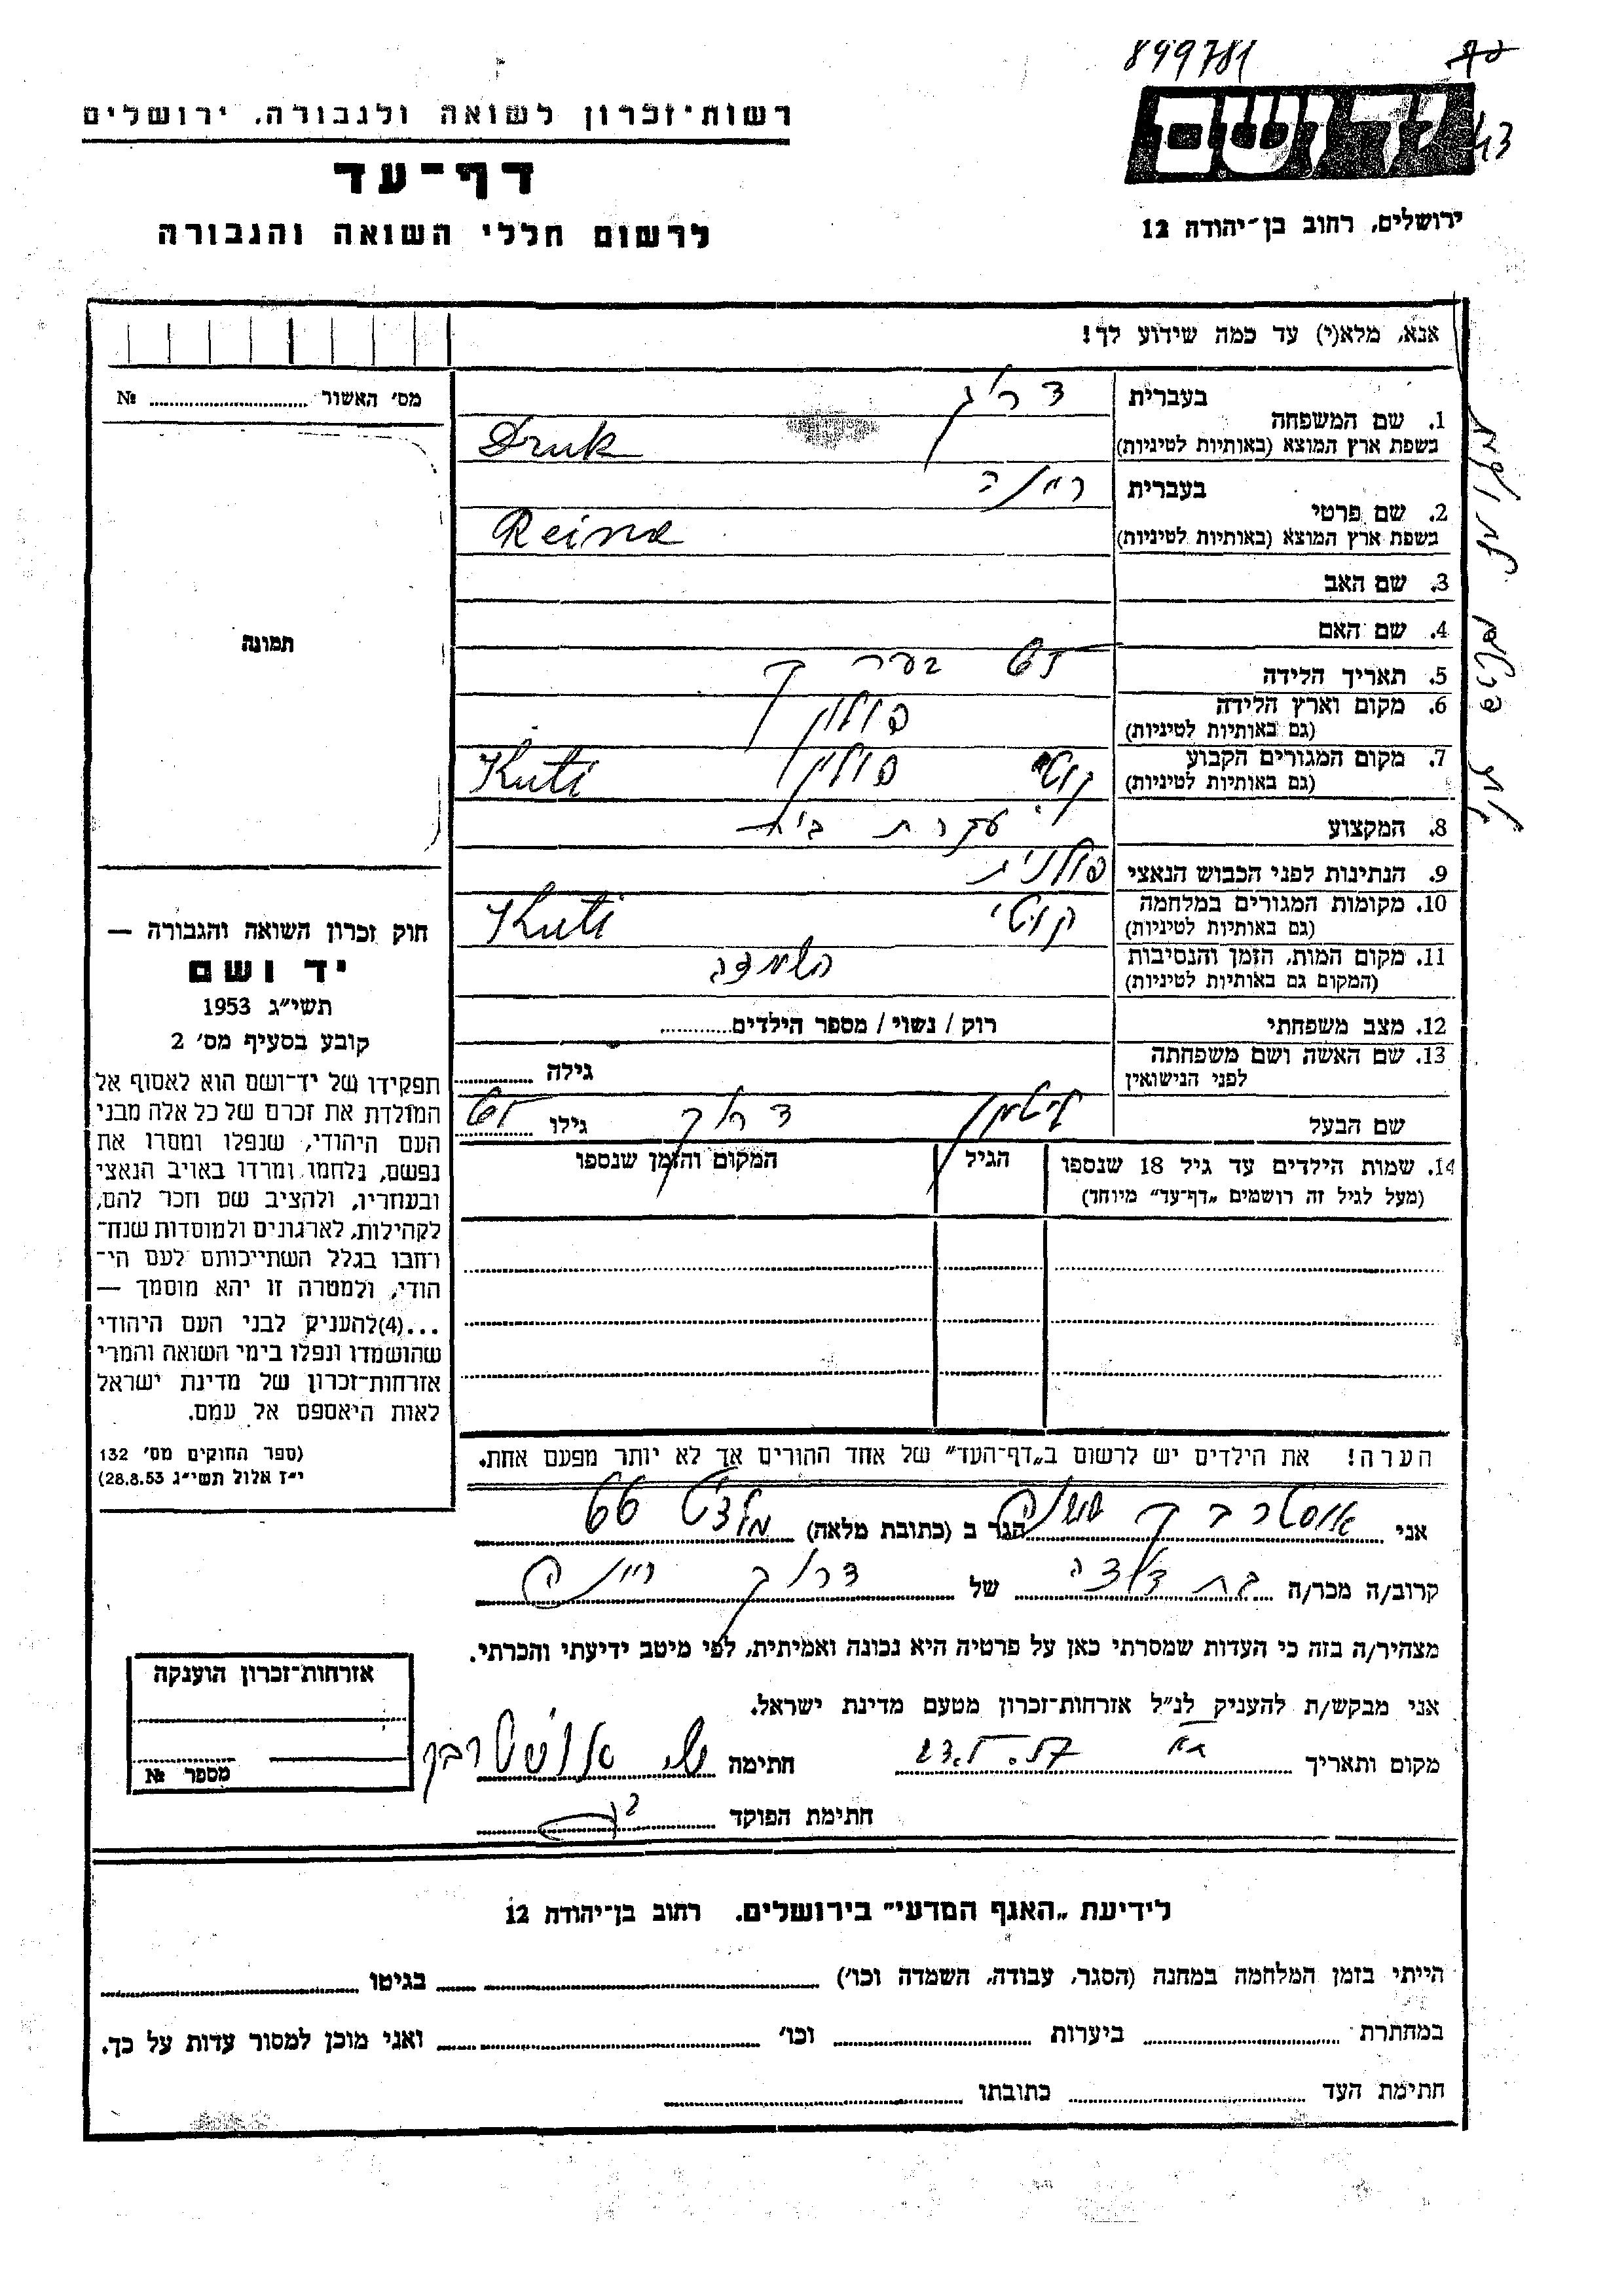 899781
רשות־זכרון לשואה ולגבורה, ירושלים
דף־עד
לרשום חללי השואה והגבורה
יד ושם
43
ירושלים, רחוב בן־יהודה 12
אנא, מלא(י) עד כמה שידוע לך!
מס' האשור № 
1. שם המשפחה
בעברית דרוק
בשפת ארץ המוצא (באותיות לטיניות) Druk
2. שם פרטי
בעברית ריינה
בשפת ארץ המוצא (באותיות לטיניות) Reina
3. שם האב
4. שם האם
5. תאריך הלידה בערך
6. מקום וארץ הלידה פולין
(גם באותיות לטיניות)
7. מקום המגורים הקבוע קוטי פולין Kuti
(גם באותיות לטיניות)
8. המקצוע עקרת בית
9. הנתינות לפני הכבוש הנאצי פולנית
10. מקומות המגורים במלחמה קוטי Kuti
(גם באותיות לטיניות)
11. מקום המות, הזמן והנסיבות השמדה
(המקום גם באותיות לטיניות)
12. מצב משפחתי רוק / נשוי / מספר הילדים
13. שם האשה ושם משפחתה
לפני הנישואין גילה
שם הבעל ליטמן דרוק גילו
14. שמות הילדים עד גיל 18 שנספו
(מעל לגיל זה רושמים „דף־עד" מיוחד)
הגיל
המקום והזמן שנספו
תמונה
חוק זכרון השואה והגבורה —
יד ושם
תשי"ג 1953
קובע בסעיף מס' 2
תפקידו של יד־ושם הוא לאסוף אל
המולדת את זכרם של כל אלה מבני
העם היהודי, שנפלו ומסרו את
נפשם, נלחמו ומרדו באויב הנאצי
ובעוזריו, ולהציב שם וזכר להם,
לקהילות, לארגונים ולמוסדות שנח־
רחבו בגלל השתייכותם לעם הי־
הודי, ולמטרה זו יהא מוסמך —
...(4) להעניק לבני העם היהודי
שהושמדו ונפלו בימי השואה והמרי
אזרחות־זכרון של מדינת ישראל
לאות היאספם אל עמם.
(ספר החוקים מס' 132
י"ז אלול תשי"ג 28.8.53)
הערה! את הילדים יש לרשום ב„דף־העד" של אחד ההורים אך לא יותר מפעם אחת.
אני הגר ב (כתובת מלאה)
קרוב/ה מכר/ה בת דודה של דרוק ריינה
מצהיר/ה בזה כי העדות שמסרתי כאן על פרטיה היא נכונה ואמיתית, לפי מיטב ידיעתי והכרתי.
אני מבקש/ת להעניק לנ"ל אזרחות־זכרון מטעם מדינת ישראל.
מקום ותאריך 23.5.57 חתימה
חתימת הפוקד
אזרחות־זכרון הוענקה
מספר №
לידיעת „האגף המדעי" בירושלים. רחוב בן־יהודה 12
הייתי בזמן המלחמה במחנה (הסגר, עבודה, השמדה וכו') בגיטו
במחתרת ביערות וכו' ואני מוכן למסור עדות על כך.
חתימת העד כתובתו